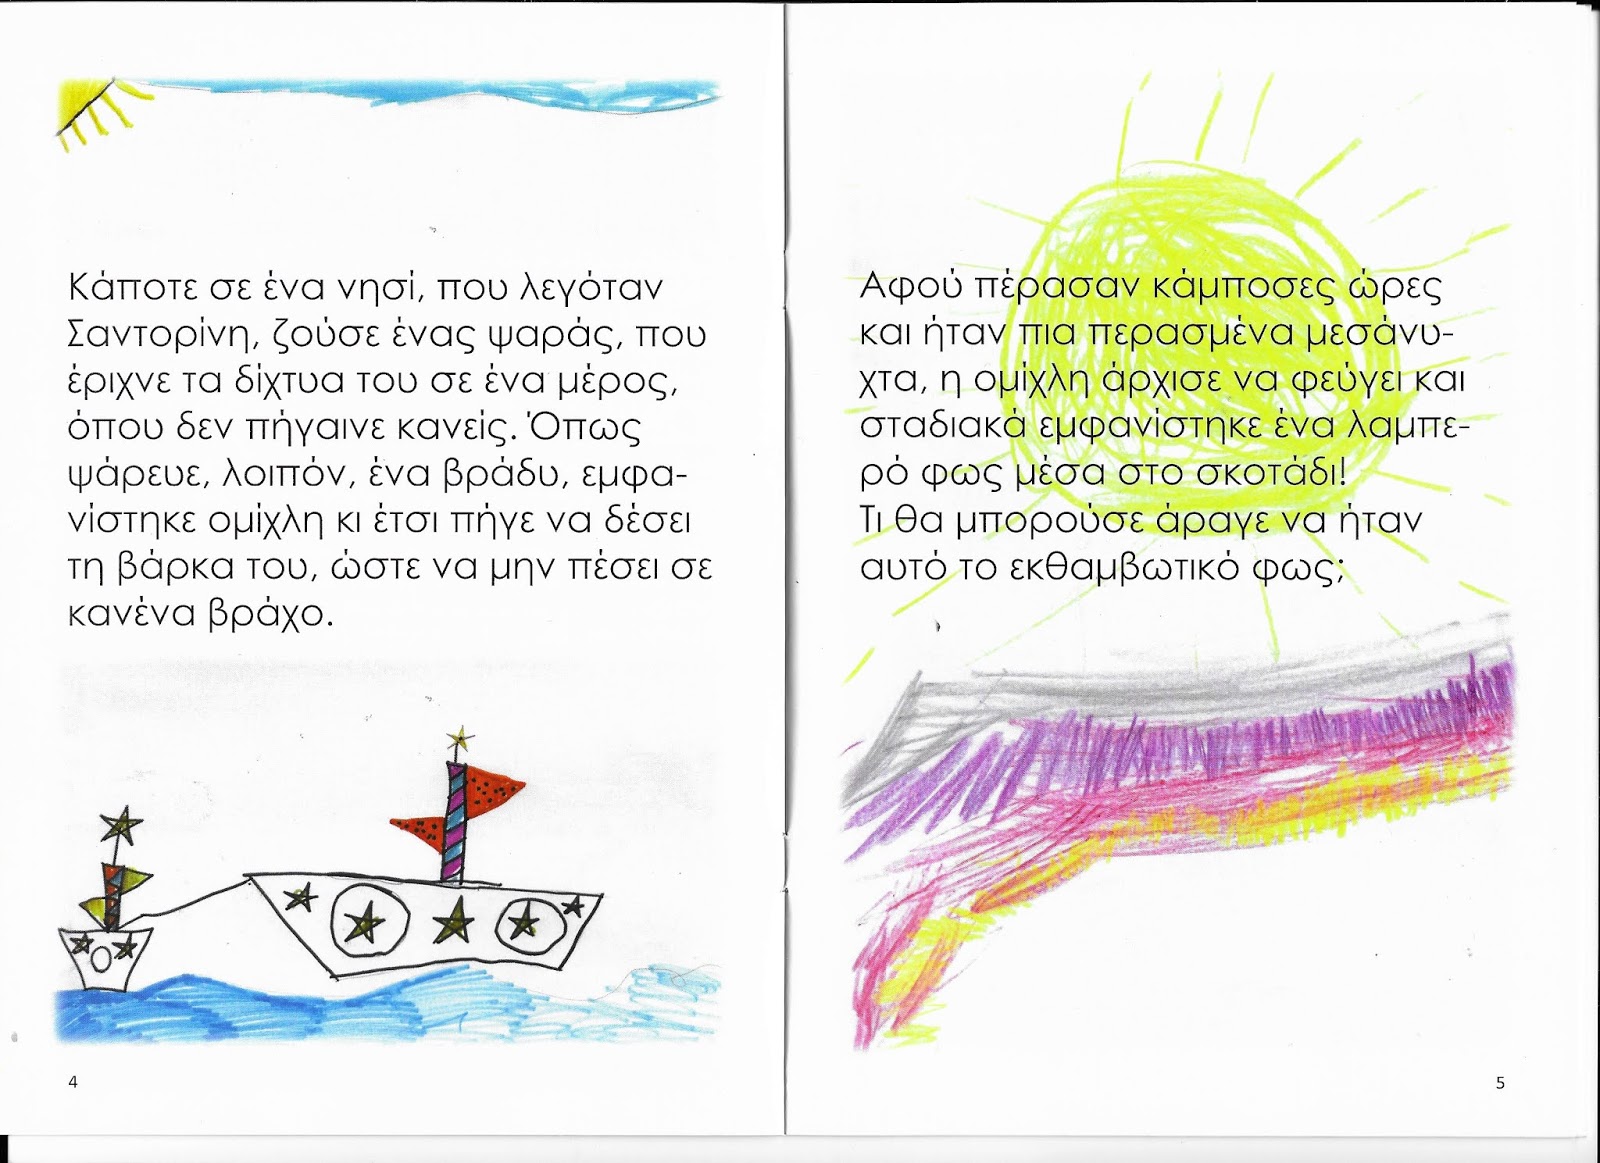 Κάποτε σε ένα νησί, που λεγόταν
Σαντορίνη, ζούσε ένας ψαράς, που
έριχνε τα δίχτυα του σε ένα μέρος,
όπου δεν πήγαινε κανείς. Όπως
ψάρευε, λοιπόν, ένα βράδυ, εμφα-
νίστηκε ομίχλη κι έτσι πήγε να δέσει
τη βάρκα του, ώστε να μην πέσει σε
κανένα βράχο.
4
Αφού πέρασαν κάμποσες ώρες
και ήταν πια περασμένα μεσάνυ-
χτα, η ομίχλη άρχισε να φεύγει και
σταδιακά εμφανίστηκε ένα λαμπε-
ρό φως μέσα στο σκοτάδι!
Τι θα μπορούσε άραγε να ήταν
αυτό το εκθαμβωτικό φως;
5